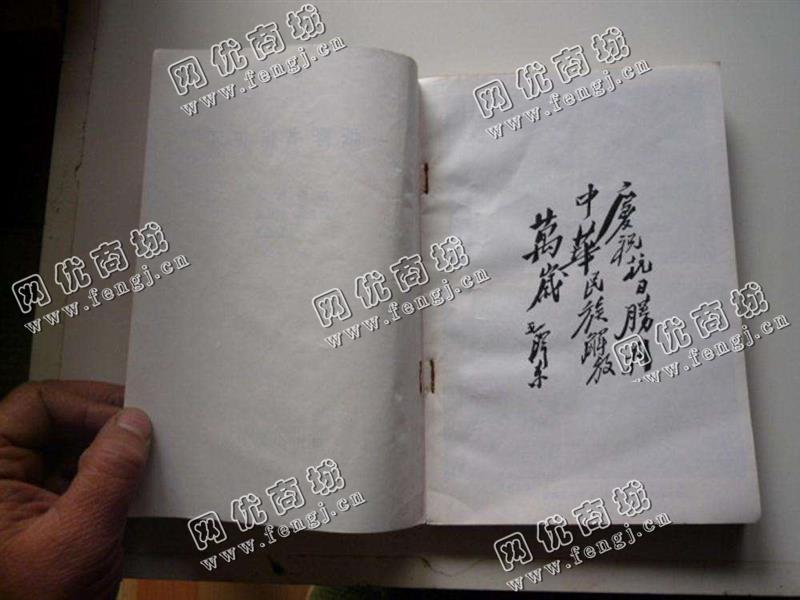 慶祝抗日勝利
中華民族解放
萬歲
毛澤東
网优商城
www.fengj.cn
网优商城
www.fengj.cn
网优商城
www.fengj.cn
网优商城
www.fengj.cn
网优商城
www.fengj.cn
网优商城
www.fengj.cn
网优商城
www.fengj.cn
网优商城
www.fengj.cn